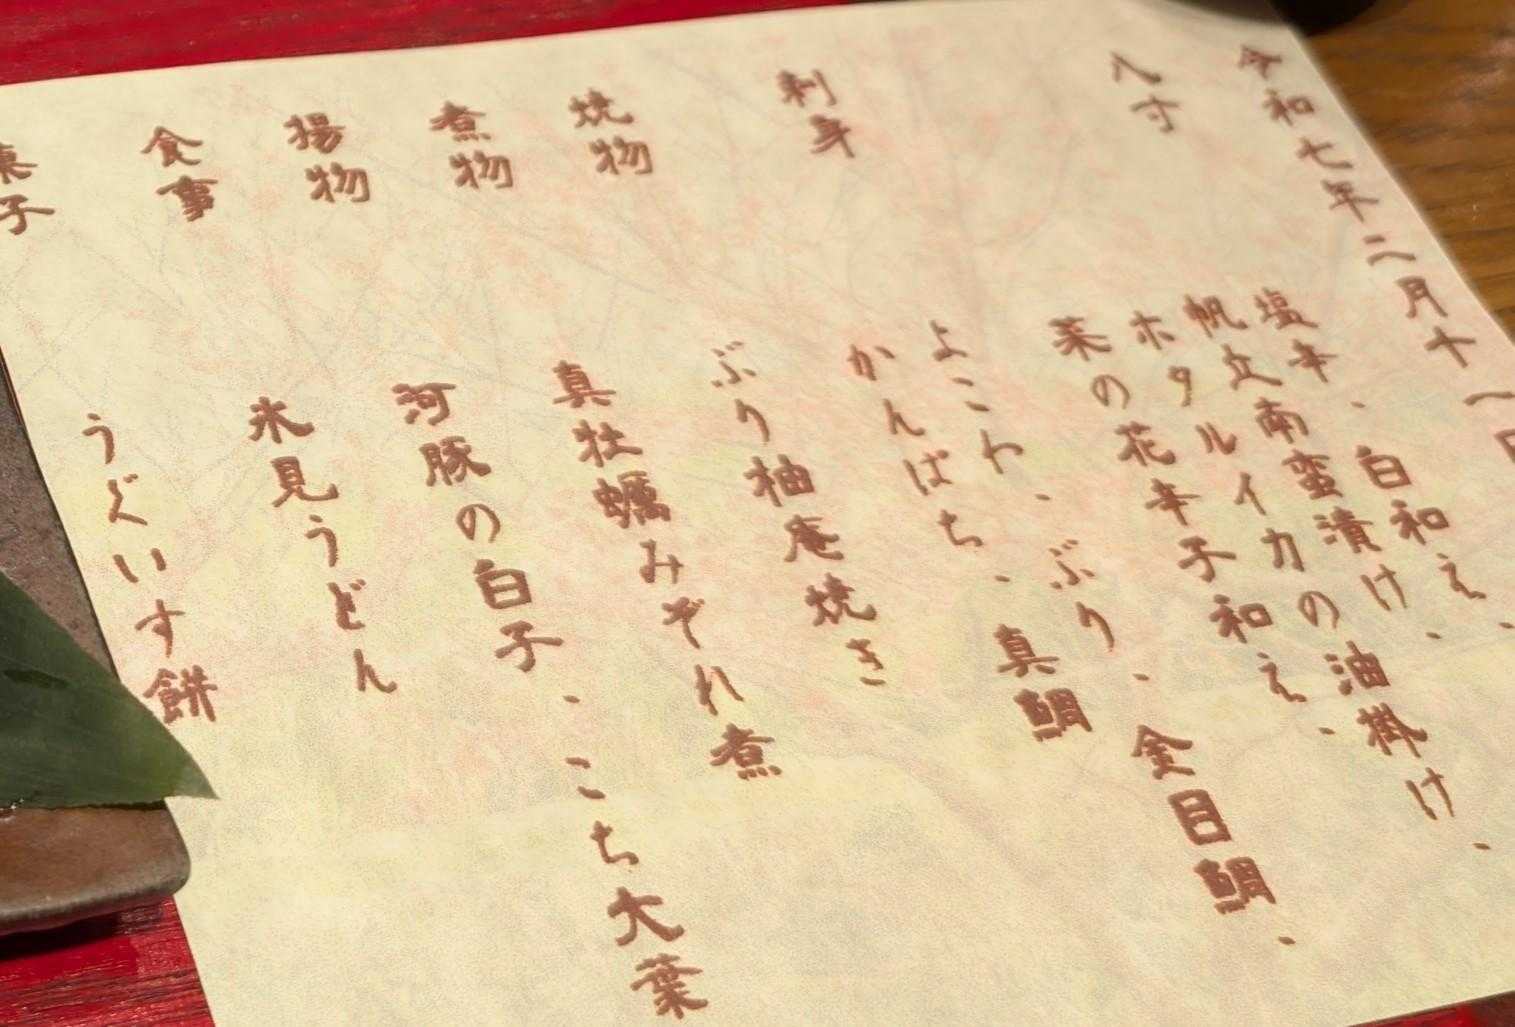 令和七年二月十一日
八寸
塩辛、白和え、
帆立南蛮漬け、
ホタルイカの油掛け、
菜の花辛子和え、
刺身
よこわ、ぶり、金目鯛、
かんぱち、真鯛
焼物
ぶり柚庵焼き
煮物
真牡蠣みぞれ煮
揚物
河豚の白子、こち大葉
食事
氷見うどん
菓子
うぐいす餅